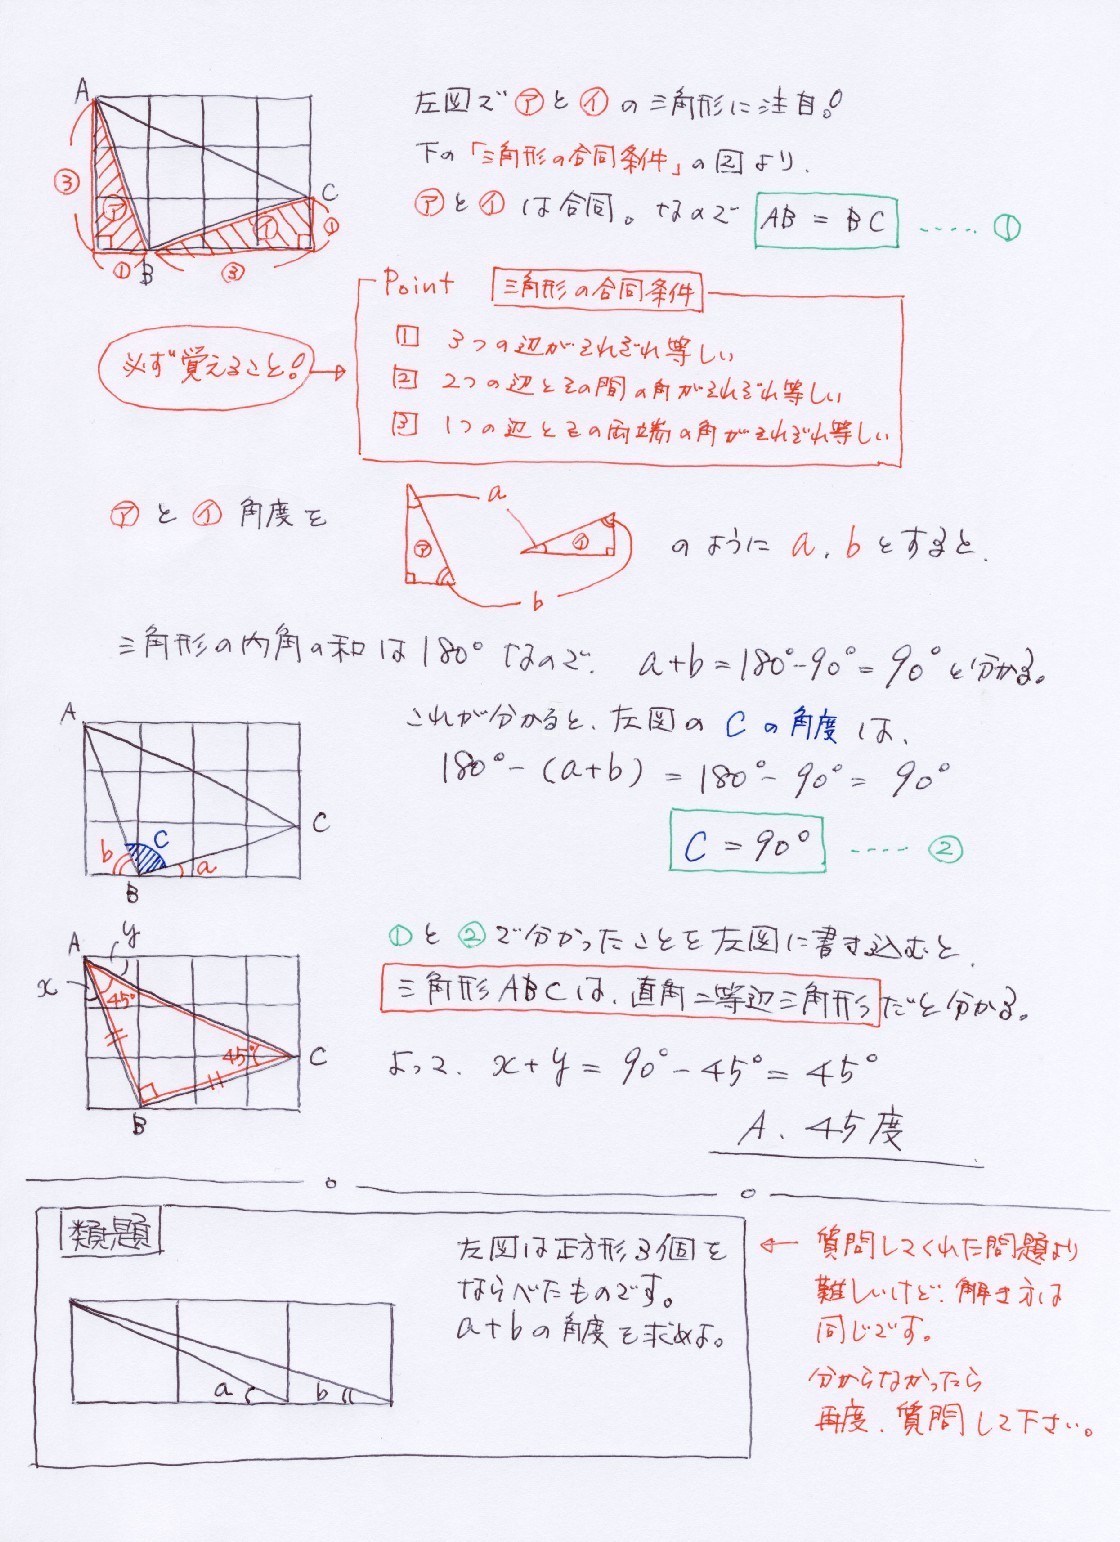 左図で㋐と㋑の三角形に注目!
下の「三角形の合同条件」の図より、
㋐と㋑は合同。なので AB = BC ····· ①
A
C
B
③
㋐
㋑
①
①
③
Point 三角形の合同条件
1 3つの辺がそれぞれ等しい
2 2つの辺とその間の角がそれぞれ等しい
3 1つの辺とその両端の角がそれぞれ等しい
必ず覚えること!
㋐と㋑角度を
a
㋐
㋑
b
のようにa、bとすると、
三角形の内角の和は180°なので、 a+b=180°-90°=90°と分かる。
これが分かると、左図のCの角度は、
180°-(a+b) = 180°-90°= 90°
C = 90° ····· ②
A
C
b
C
a
B
①と②で分かったことを左図に書き込むと、
三角形ABCは、直角二等辺三角形だと分かる。
よって、x+y = 90°-45°= 45°
A. 45度
A
y
x
45°
45°
C
B
類題
左図は正方形3個を
ならべたものです。
a+bの角度を求めよ。
a
b
← 質問してくれた問題より
難しいけど、解き方は
同じです。
分からなかったら
再度、質問して下さい。